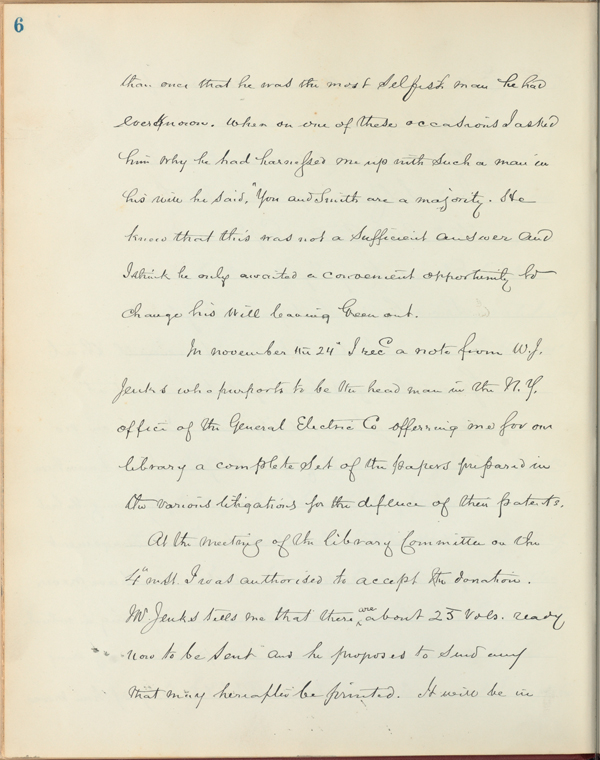 6
than once that he was the most selfish man he had
ever known. When on one of these occasions I asked
him why he had harnessed me up with such a man in
his will he said, "You and Smith are a majority. He
knew that this was not a sufficient answer and
I think he only awaited a convenient opportunity to
change his will leaving Green out.
In november the 24" I recd a note from W.J.
Jenks who purports to be the head man in the N.Y.
office of the General Electric Co offerring me for our
library a complete set of the papers prepared in
the various litigations for the defence of their patents.
At the meeting of the library Committee on the
4" inst. I was authorised to accept the donation.
Mr Jenks tells me that there are about 25 Vols. ready
now to be sent and he proposes to send any
that may hereafter be printed. It will be in